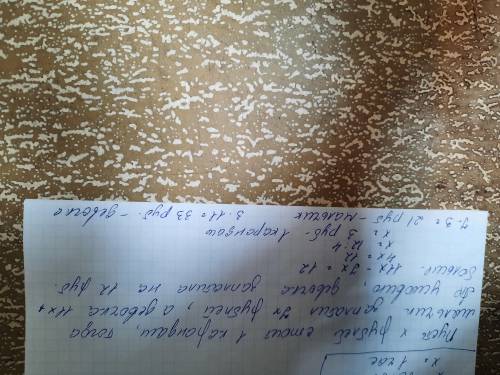 x = 1 час
Пусть х рублей стоит 1 карандаш, тогда
мальчик заплатил 7х рублей, а девочка 11х.
По условию, девочка заплатила на 12 руб.
больше.
11х - 7х = 12
4х = 12
х = 12:4
х = 3 руб - 1 карандаш
7·3 = 21 руб - мальчик
3·11 = 33 руб. - девочка